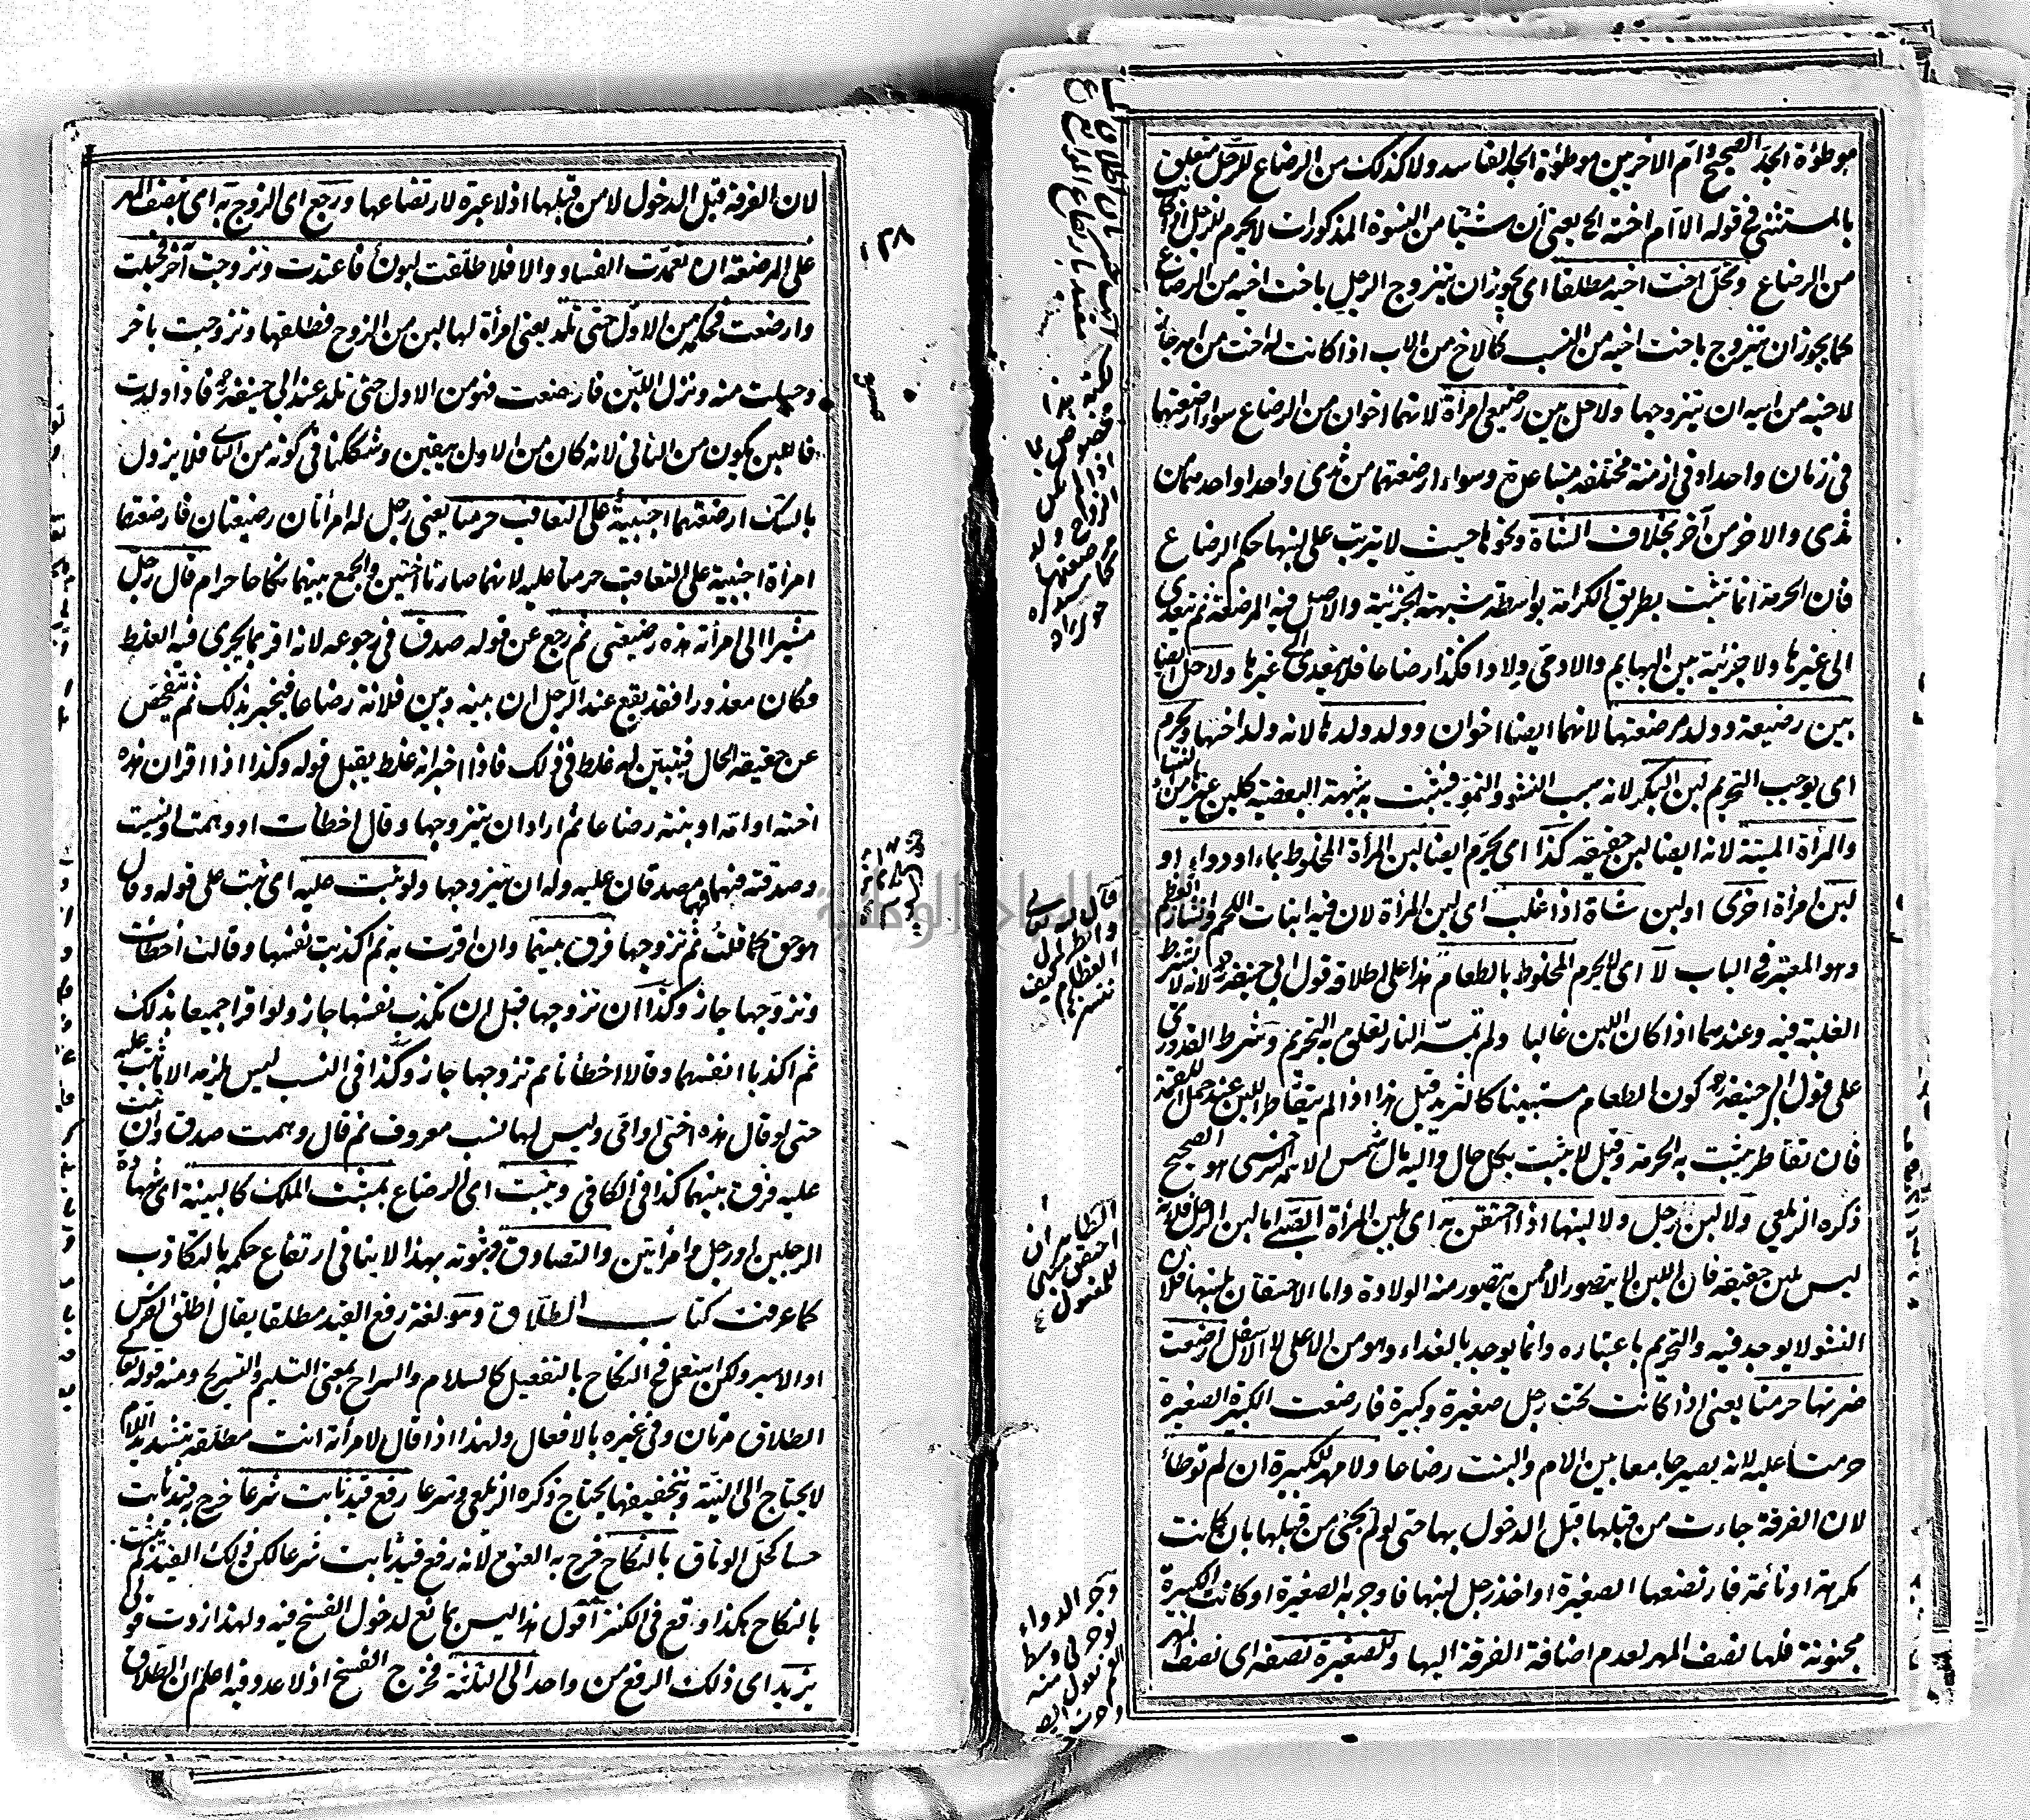 موطؤة الجد الصحيح وام الاخريين موطؤة الجد الفاسد ولا كذلك من الرضاع للرجل متعلق
بالمستثنى في قوله الا ام اخته الخ يعني ان شيئا من النسوة المذكورات لا يحرم للرجل اذا كانت
من الرضاع وتحل اخت اخيه مطلقا اي يجوز ان يتزوج الرجل باخت اخيه من الرضاع
كما يجوز ان يتزوج باخت اخيه من النسب كالاخ من الاب اذا كانت له اخت من امه جاز
لاخيه من ابيه ان يتزوجها ولا حل بين رضيعي امرأة لانهما اخوان من الرضاع سواء ارضعتهما
في زمان واحد او في ازمنة مختلفة متباعدة وسواء ارضعتهما من ثدي واحد او احدهما من
ثدي والاخر من آخر بخلاف الشاة ونحوها حيث لا يترتب على لبنها حكم الرضاع
فان الحرمة انما تثبت بطريق الكرامة بواسطة شبهة الجزئية والاصل فيه المرضعة ثم يتعدى
الى غيرها ولا جزئية بين البهايم والادمي ولادا فكذا رضاعا فلا يتعدى الى غيرها ولا حل ايضا
بين رضيعة وولد مرضعتها لانهما ايضا اخوان وولد ولدها لانه ولد اختها ويحرم
اي يوجب التحريم لبن البكر لانه سبب النشو والنمو فيثبت به شبهة البعضية كلبن غيرها من النساء
والمرأة الميتة لانه ايضا لبن حقيقة كذا اي يحرم ايضا لبن المرأة المخلوط بماء او دواء او
لبن امرأة اخرى او لبن شاة اذا غلب اي لبن المرأة لان فيه انبات اللحم وانشاز العظم
وهو المعتبر في الباب لا اي لا يحرم المخلوط بالطعام هذا على اطلاقه قول ابي حنيفة لانه لا تشترط
الغلبة فيه وعندهما اذا كان اللبن غالبا ولم تمسه النار تعلق به التحريم وشرط القدوري
على قول ابي حنيفة كون الطعام مستبينا كالثريد قيل هذا اذا لم يتقاطر اللبن عند حمل اللقمة
فان تقاطر يثبت به الحرمة وقيل لا يثبت بكل حال واليه مال شمس الائمة السرخسي هو الصحيح
ذكره الزيلعي ولا لبن رجل ولا لبنها اذا احتقن به اي بلبن المرأة الصبي اما لبن الرجل فلانه
ليس بلبن حقيقة فان اللبن لا يتصور الا ممن يتصور منه الولادة واما الاحتقان بلبنها فلان
النشو لا يوجد فيه والتحريم باعتباره وانما يوجد بالغذاء وهو من الاعلى لا الاسفل ارضعت
ضرتها حرمتا يعني اذا كانت تحت رجل صغيرة وكبيرة فارضعت الكبيرة الصغيرة
حرمتا عليه لانه يصير جامعا بين الام والبنت رضاعا ولا مهر للكبيرة ان لم توطأ
لان الفرقة جاءت من قبلها قبل الدخول بها حتى لو لم يجئ من قبلها بان كانت
مكرهة او نائمة فارتضعها الصغيرة او اخذ رجل لبنها فاوجر به الصغيرة او كانت الكبيرة
مجنونة فلها نصف المهر لعدم اضافة الفرقة اليها وللصغيرة نصفه اي نصف المهر
قال
احتقن
للمفعول
١٢٨
لان الفرقة قبل الدخول لا من قبلها اذ لا عبرة لارتضاعها ورجع اي الزوج به اي بنصف المهر
على المرضعة ان تعمدت الفساد والا فلا طلقت لبون فاعتدت وتزوجت آخر فحبلت
وارضعت فحكمه من الاول حتى تلد يعني امرأة لها لبن من الزوج فطلقها وتزوجت باخر
وحبلت منه ونزل اللبن فارضعت فهو من الاول حتى تلد عند ابي حنيفة فاذا ولدت
فاللبن يكون من الثاني لانه كان من الاول بيقين وشككنا في كونه من الثاني فلا يزول
بالشك ارضعتهما اجنبية على التعاقب حرمتا يعني رجل له امرأتان رضيعتان فارضعتهما
امرأة اجنبية على التعاقب حرمتا عليه لانهما صارتا اختين والجمع بينهما نكاحا حرام قال رجل
مشيرا الى امرأته هذه رضيعتي ثم رجع عن قوله صدق في رجوعه لانه اقر بما يجري فيه الغلط
فكان معذورا فقد يقع عند الرجل ان بينه وبين فلانة رضاعا فيخبر بذلك ثم يتفحص
عن حقيقة الحال فيتبين له غلط في ذلك فاذا اخبر انه غلط يقبل قوله وكذا اذا اقر ان هذه
اخته او امه او بنته رضاعا ثم اراد ان يتزوجها وقال اخطأت او وهمت او نسيت
وصدقته فهما مصدقان عليه وله ان يتزوجها ولو ثبت عليه اي ثبت على قوله وقال
هو حق كما قلت ثم تزوجها فرق بينهما وان اقرت به ثم اكذبت نفسها وقالت اخطأت
وتزوجها جاز وكذا ان تزوجها قبل ان تكذب نفسها جاز ولو اقرا جميعا بذلك
ثم اكذبا انفسهما وقالا اخطأنا ثم تزوجها جاز وكذا في النسب ليس يلزمه الا ما ثبت عليه
حتى لو قال هذه اختي او امي وليس لها نسب معروف ثم قال وهمت صدق وان ثبت
عليه فرق بينهما كذا في الكافي ويثبت اي الرضاع بمثبت الملك كالبينة اي شهادة
الرجلين او رجل وامرأتين والتصادق وثبوته بهذا لا ينافي ارتفاع حكمه بالتكاذب
كما عرفت كتاب الطلاق وهو لغة رفع القيد مطلقا يقال اطلق الفرس
او الاسير ولكن استعمل في النكاح بالتفعيل كالسلام والسراح بمعنى التسليم والتسريح ومنه قوله تعالى
الطلاق مرتان وفي غيره بالافعال ولهذا اذا قال لامرأته انت مطلقة بتشديد اللام
لا يحتاج الى النية وبتخفيفها يحتاج ذكره الزيلعي وشرعا رفع قيد ثابت شرعا خرج به قيد ثابت
حسا كحل الوثاق بالنكاح خرج به العتق لانه رفع قيد ثابت شرعا لكن ذلك القيد لم يثبت
بالنكاح هكذا وقع في الكنز اقول هذا ليس بمانع لدخول الفسخ فيه ولهذا زدت قولي
يزيد اي ذلك الرفع من واحد الى الثلثة فخرج الفسخ اذ لا عدد فيه اعلم ان الطلاق